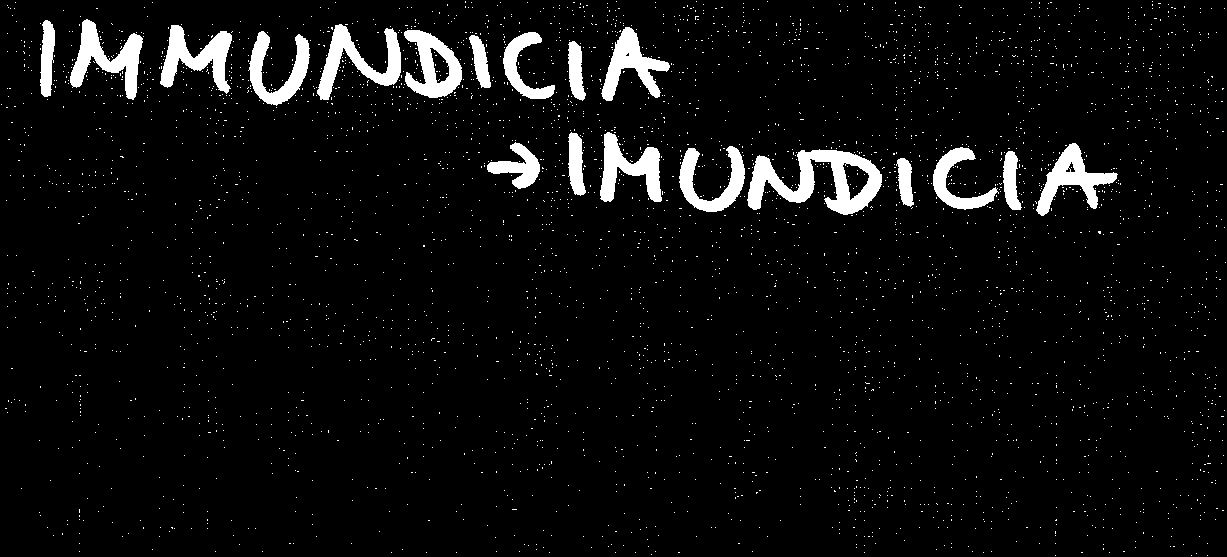 IMMUNDICIA
→ IMUNDICIA